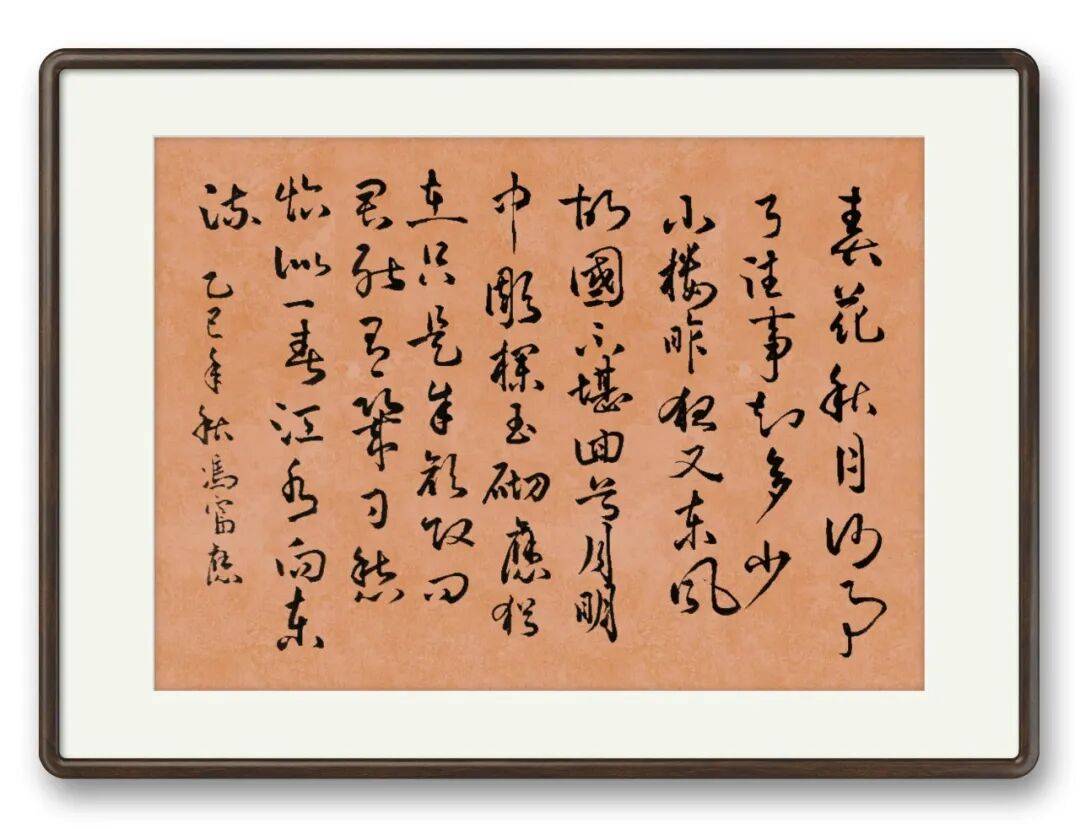 春花秋月何時
了往事知多少
小樓昨夜又東風
故國不堪回首月明
中雕欄玉砌應猶
在只是朱顏改問
君能有幾多愁
恰似一春江水向東
流 乙巳年秋馮富